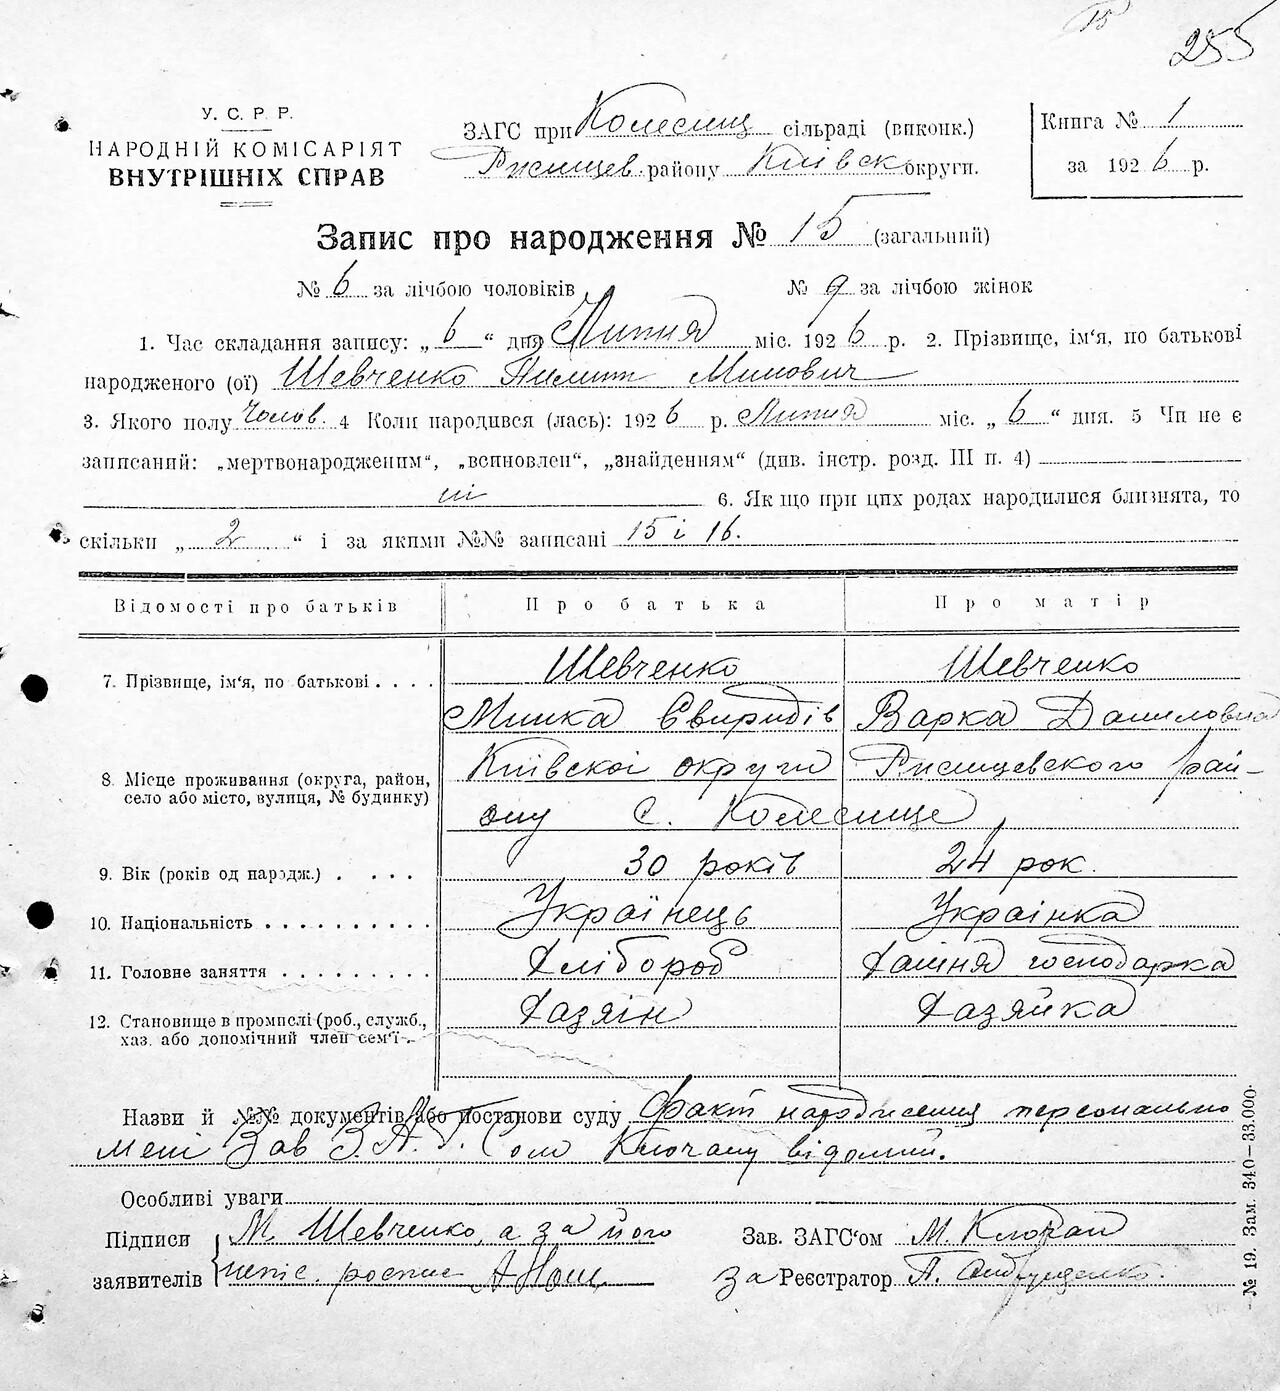 255
У. С. Р. Р.
НАРОДНІЙ КОМІСАРІЯТ
ВНУТРІШНІХ СПРАВ
ЗАГС при Колесищ сільраді (виконк.)
Ржищев. району Київськ округи.
Книга № 1
за 1926 р.
Запис про народження № 15 (загальний)
№ 6 за лічбою чоловіків № 9 за лічбою жінок
1. Час складання запису: „ 6 “ дня Липня міс. 1926 р. 2. Прізвище, ім‘я, по батькові
народженого (ої) Шевченко Пилип Минович
3. Якого полу Чолов. 4 Коли народився (лась): 1926 р. Липня міс. „ 6 “ дня. 5 Чи не є
записаний: „мертвонародженим“, „всиновлен“, „знайденням“ (див. інстр. розд. III п. 4)
ні 6. Якщо при цих родах народилися близнята, то
скільки „ 2 “ і за якими №№ записані 15 і 16.
Відомості про батьків Про батька Про матір
7. Прізвище, ім‘я, по батькові . . . . Шевченко Шевченко
Минка Свиридів Варка Даниловна
8. Місце проживання (округа, район, село або місто, вулиця, № будинку) Київскоі округи Ржищевского рай-
ону С. Колесище
9. Вік (років од народж.) . . . . 30 років 24 рок.
10. Національність . . . . . . . . . . Українець Украінка
11. Головне заняття . . . . . . . . . Хлібороб Хатня господарка
12. Становище в промислі (роб., служб., хаз. або допомічний член сем‘ї . Хазяін Хазяйка
Назви й №№ документів або постанови суду Факт народження персонально
мені Зав З.А.Г.С ом Клочану відомий.
Особливі уваги
Підписи заявителів М Шевченко, а за його
непис. роспис
Зав. ЗАГС‘ом М. Клочан
за Реєстратор П.
№ 19. Зам. 340—33.000.